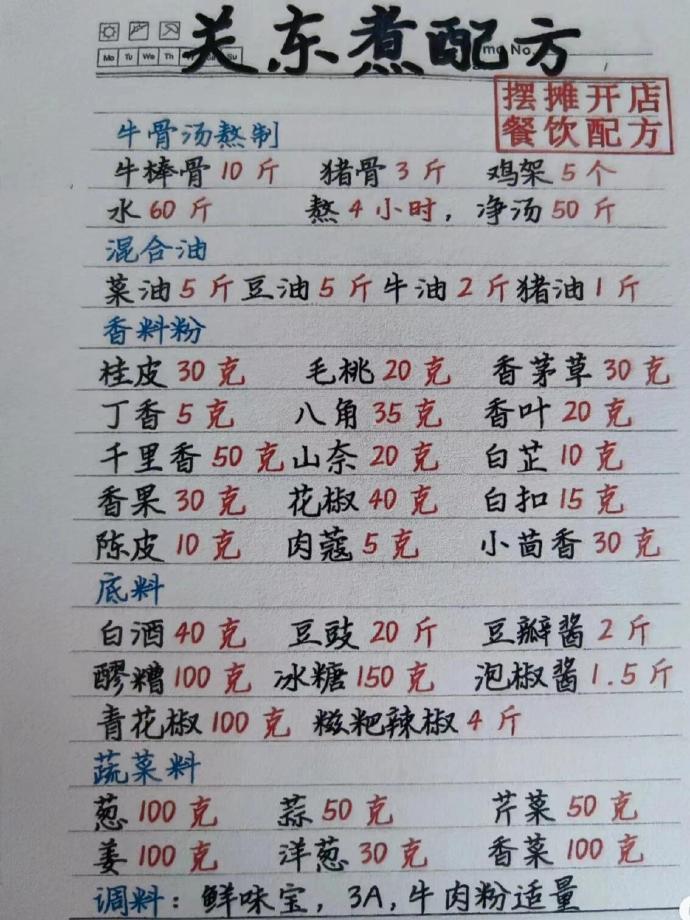 关东煮配方
mg No.
Mo Tu We Th Fr Sa Su
摆摊开店
餐饮配方
牛骨汤熬制
牛棒骨10斤 猪骨3斤 鸡架5个
水60斤 熬4小时，净汤50斤
混合油
菜油5斤豆油5斤牛油2斤猪油1斤
香料粉
桂皮30克 毛桃20克 香茅草30克
丁香5克 八角35克 香叶20克
千里香50克 山奈20克 白芷10克
香果30克 花椒40克 白扣15克
陈皮10克 肉蔻5克 小茴香30克
底料
白酒40克 豆豉20斤 豆瓣酱2斤
醪糟100克 冰糖150克 泡椒酱1.5斤
青花椒100克 糍粑辣椒4斤
蔬菜料
葱100克 蒜50克 芹菜50克
姜100克 洋葱30克 香菜100克
调料：鲜味宝，3A，牛肉粉适量